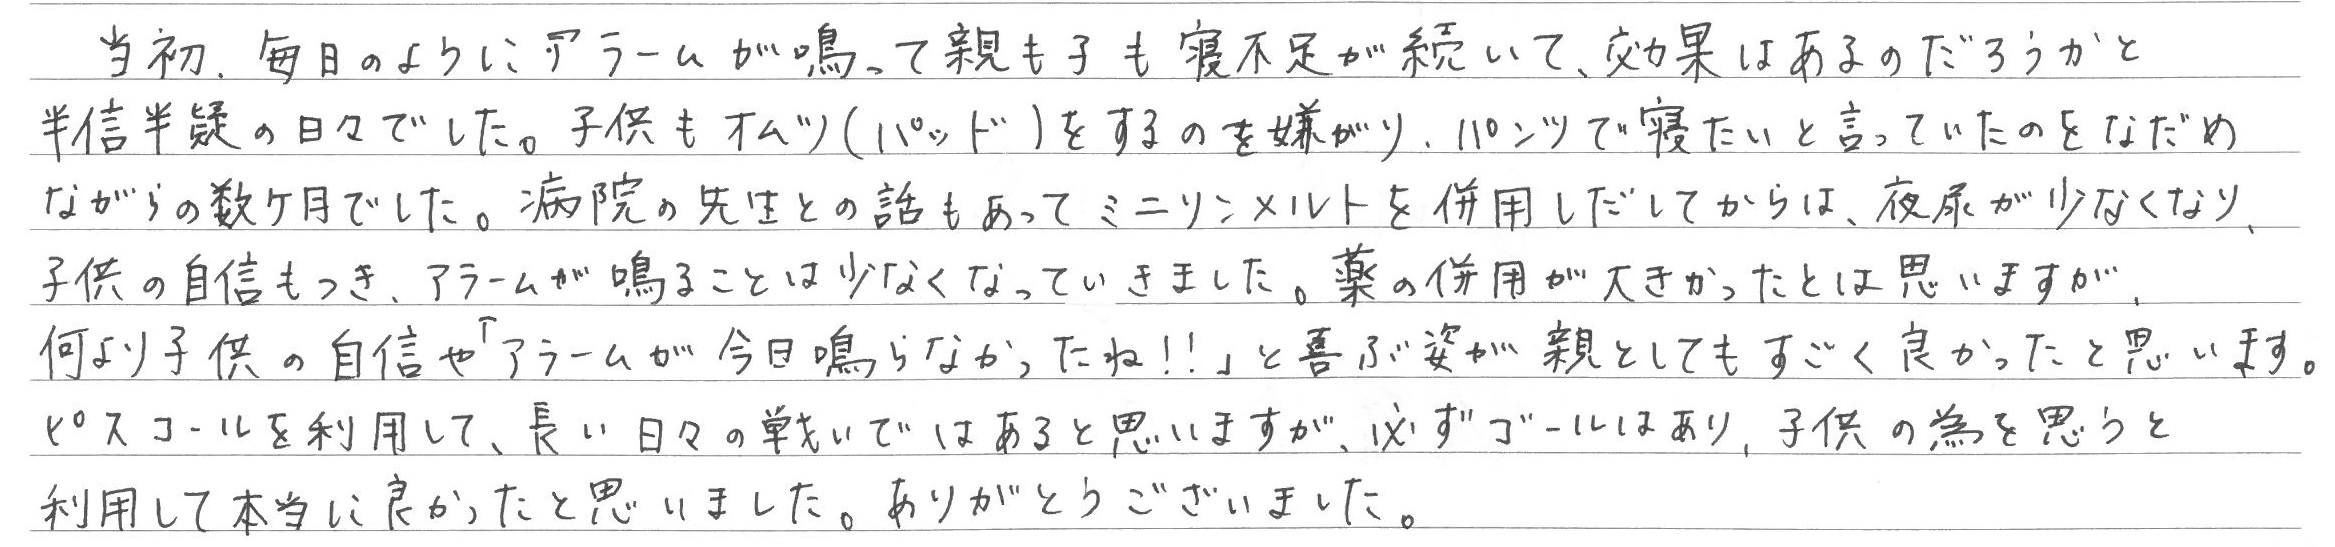 当初、毎日のようにアラームが鳴って親も子も寝不足が続いて、効果はあるのだろうかと
半信半疑の日々でした。子供もオムツ(パッド)をするのを嫌がり、パンツで寝たいと言っていたのをなだめ
ながらの数ケ月でした。病院の先生との話もあってミニリンメルトを併用しだしてからは、夜尿が少なくなり、
子供の自信もつき、アラームが鳴ることは少なくなっていきました。薬の併用が大きかったとは思いますが、
何より子供の自信や「アラームが今日鳴らなかったね!!」と喜ぶ姿が親としてもすごく良かったと思います。
ピスコールを利用して、長い日々の戦いではあると思いますが、必ずゴールはあり、子供の為を思うと
利用して本当に良かったと思いました。ありがとうございました。